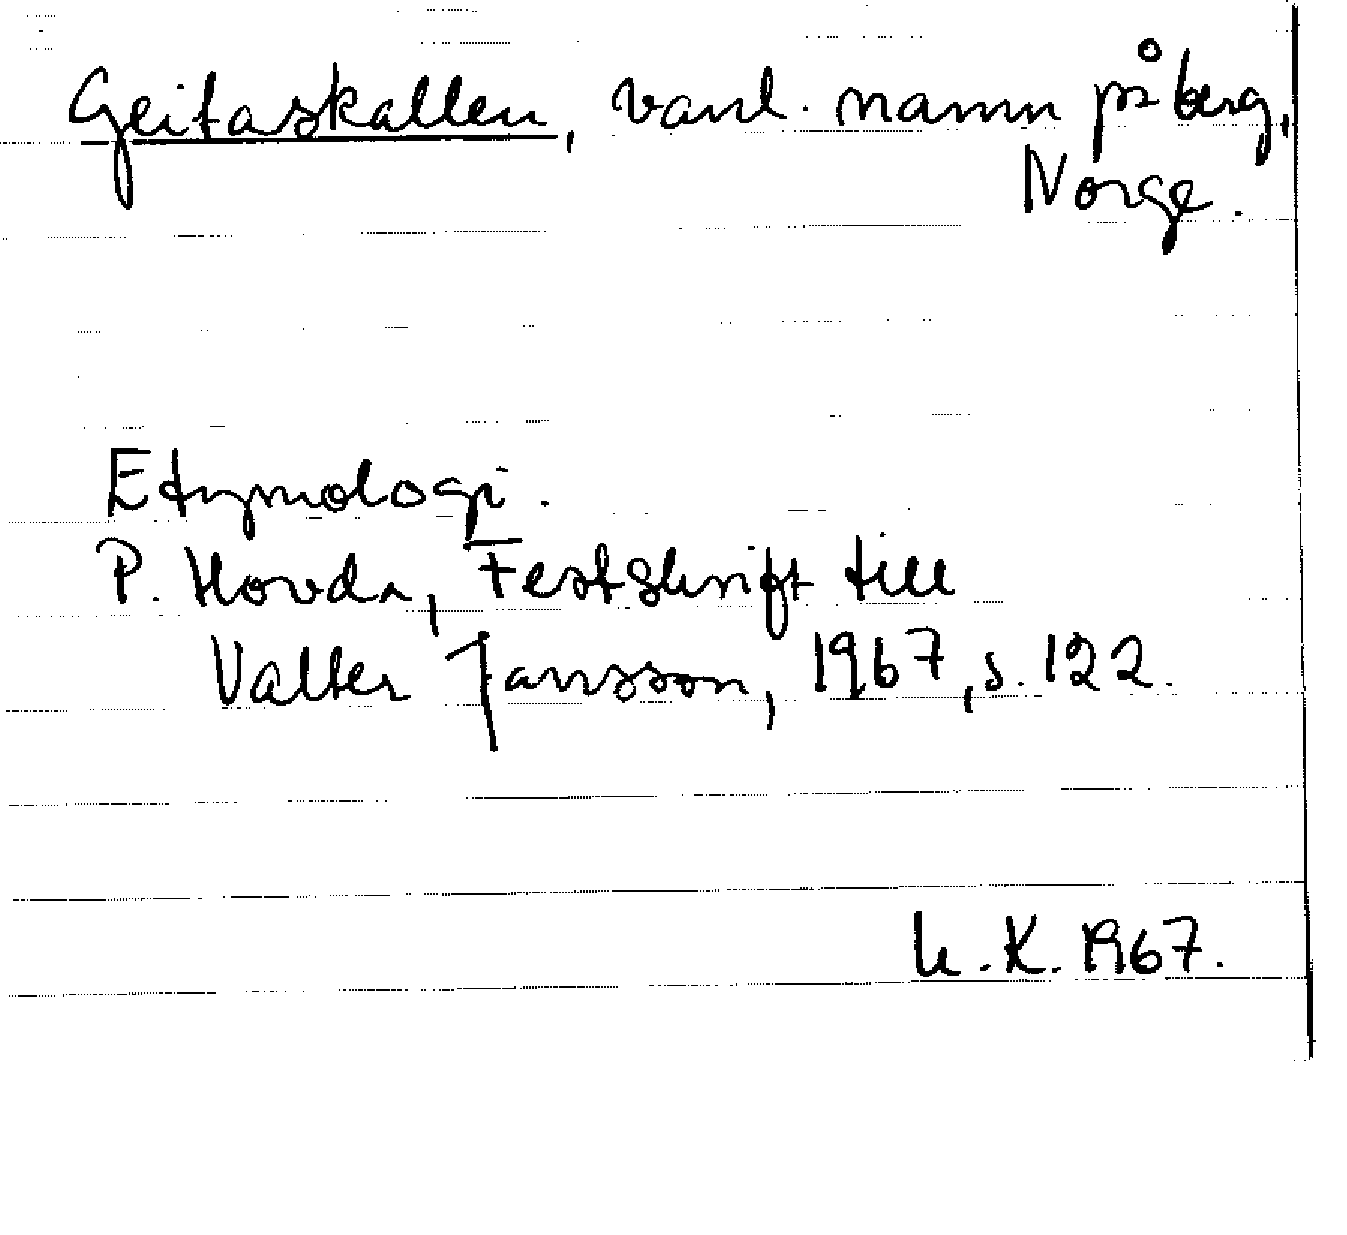 Geitaskallen, vanl. namn på berg,
Norge.
Etymologi.
P. Hovda, Festskrift till
Valter Jansson, 1967, s. 122.
U.K. 1967.